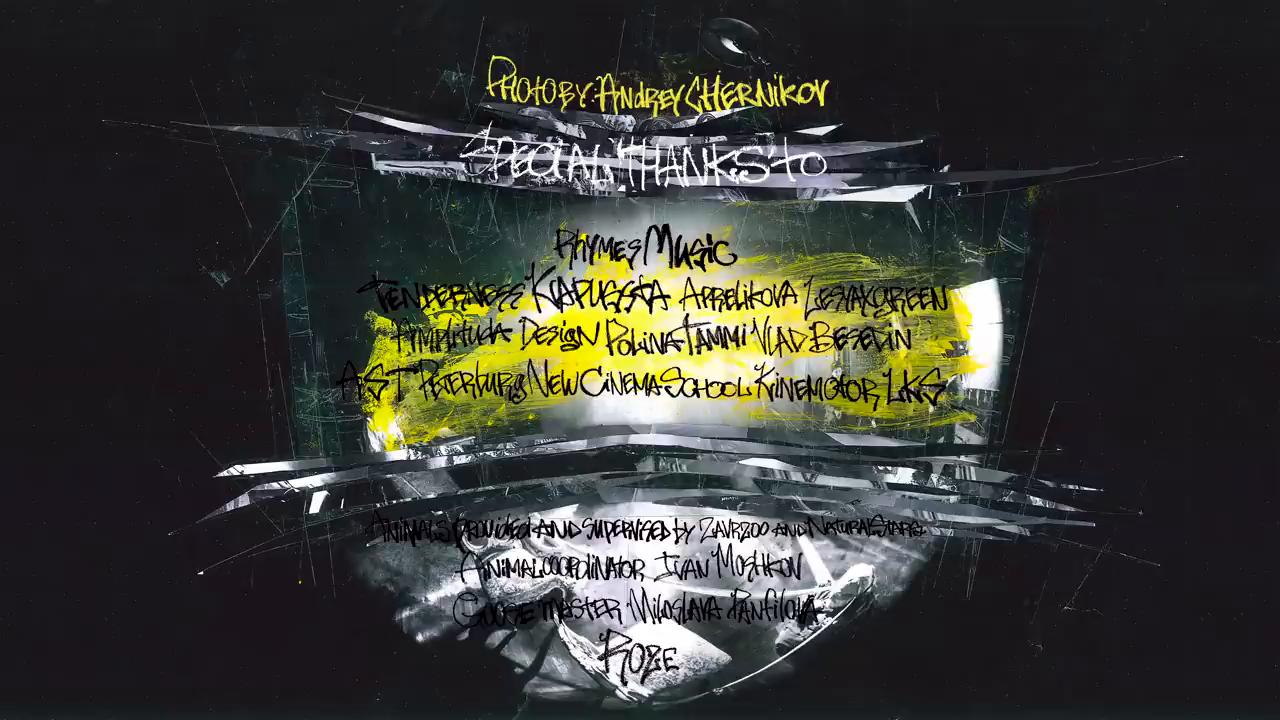 Photo by: Andrey Chernikov
Special thanks to
Rhymes Music
Tenderness Kapussta Aprelikova Lesyakgreen
Amplituda Design Polina Tammi Vlad Besedin
AST Peterburg New Cinema School Kinemotor LKS
Animals provided and supervised by Zavrzoo and Natural Stars
Animal coordinator Ivan Moshkov
Goose master Miloslava Panfilova
Roze